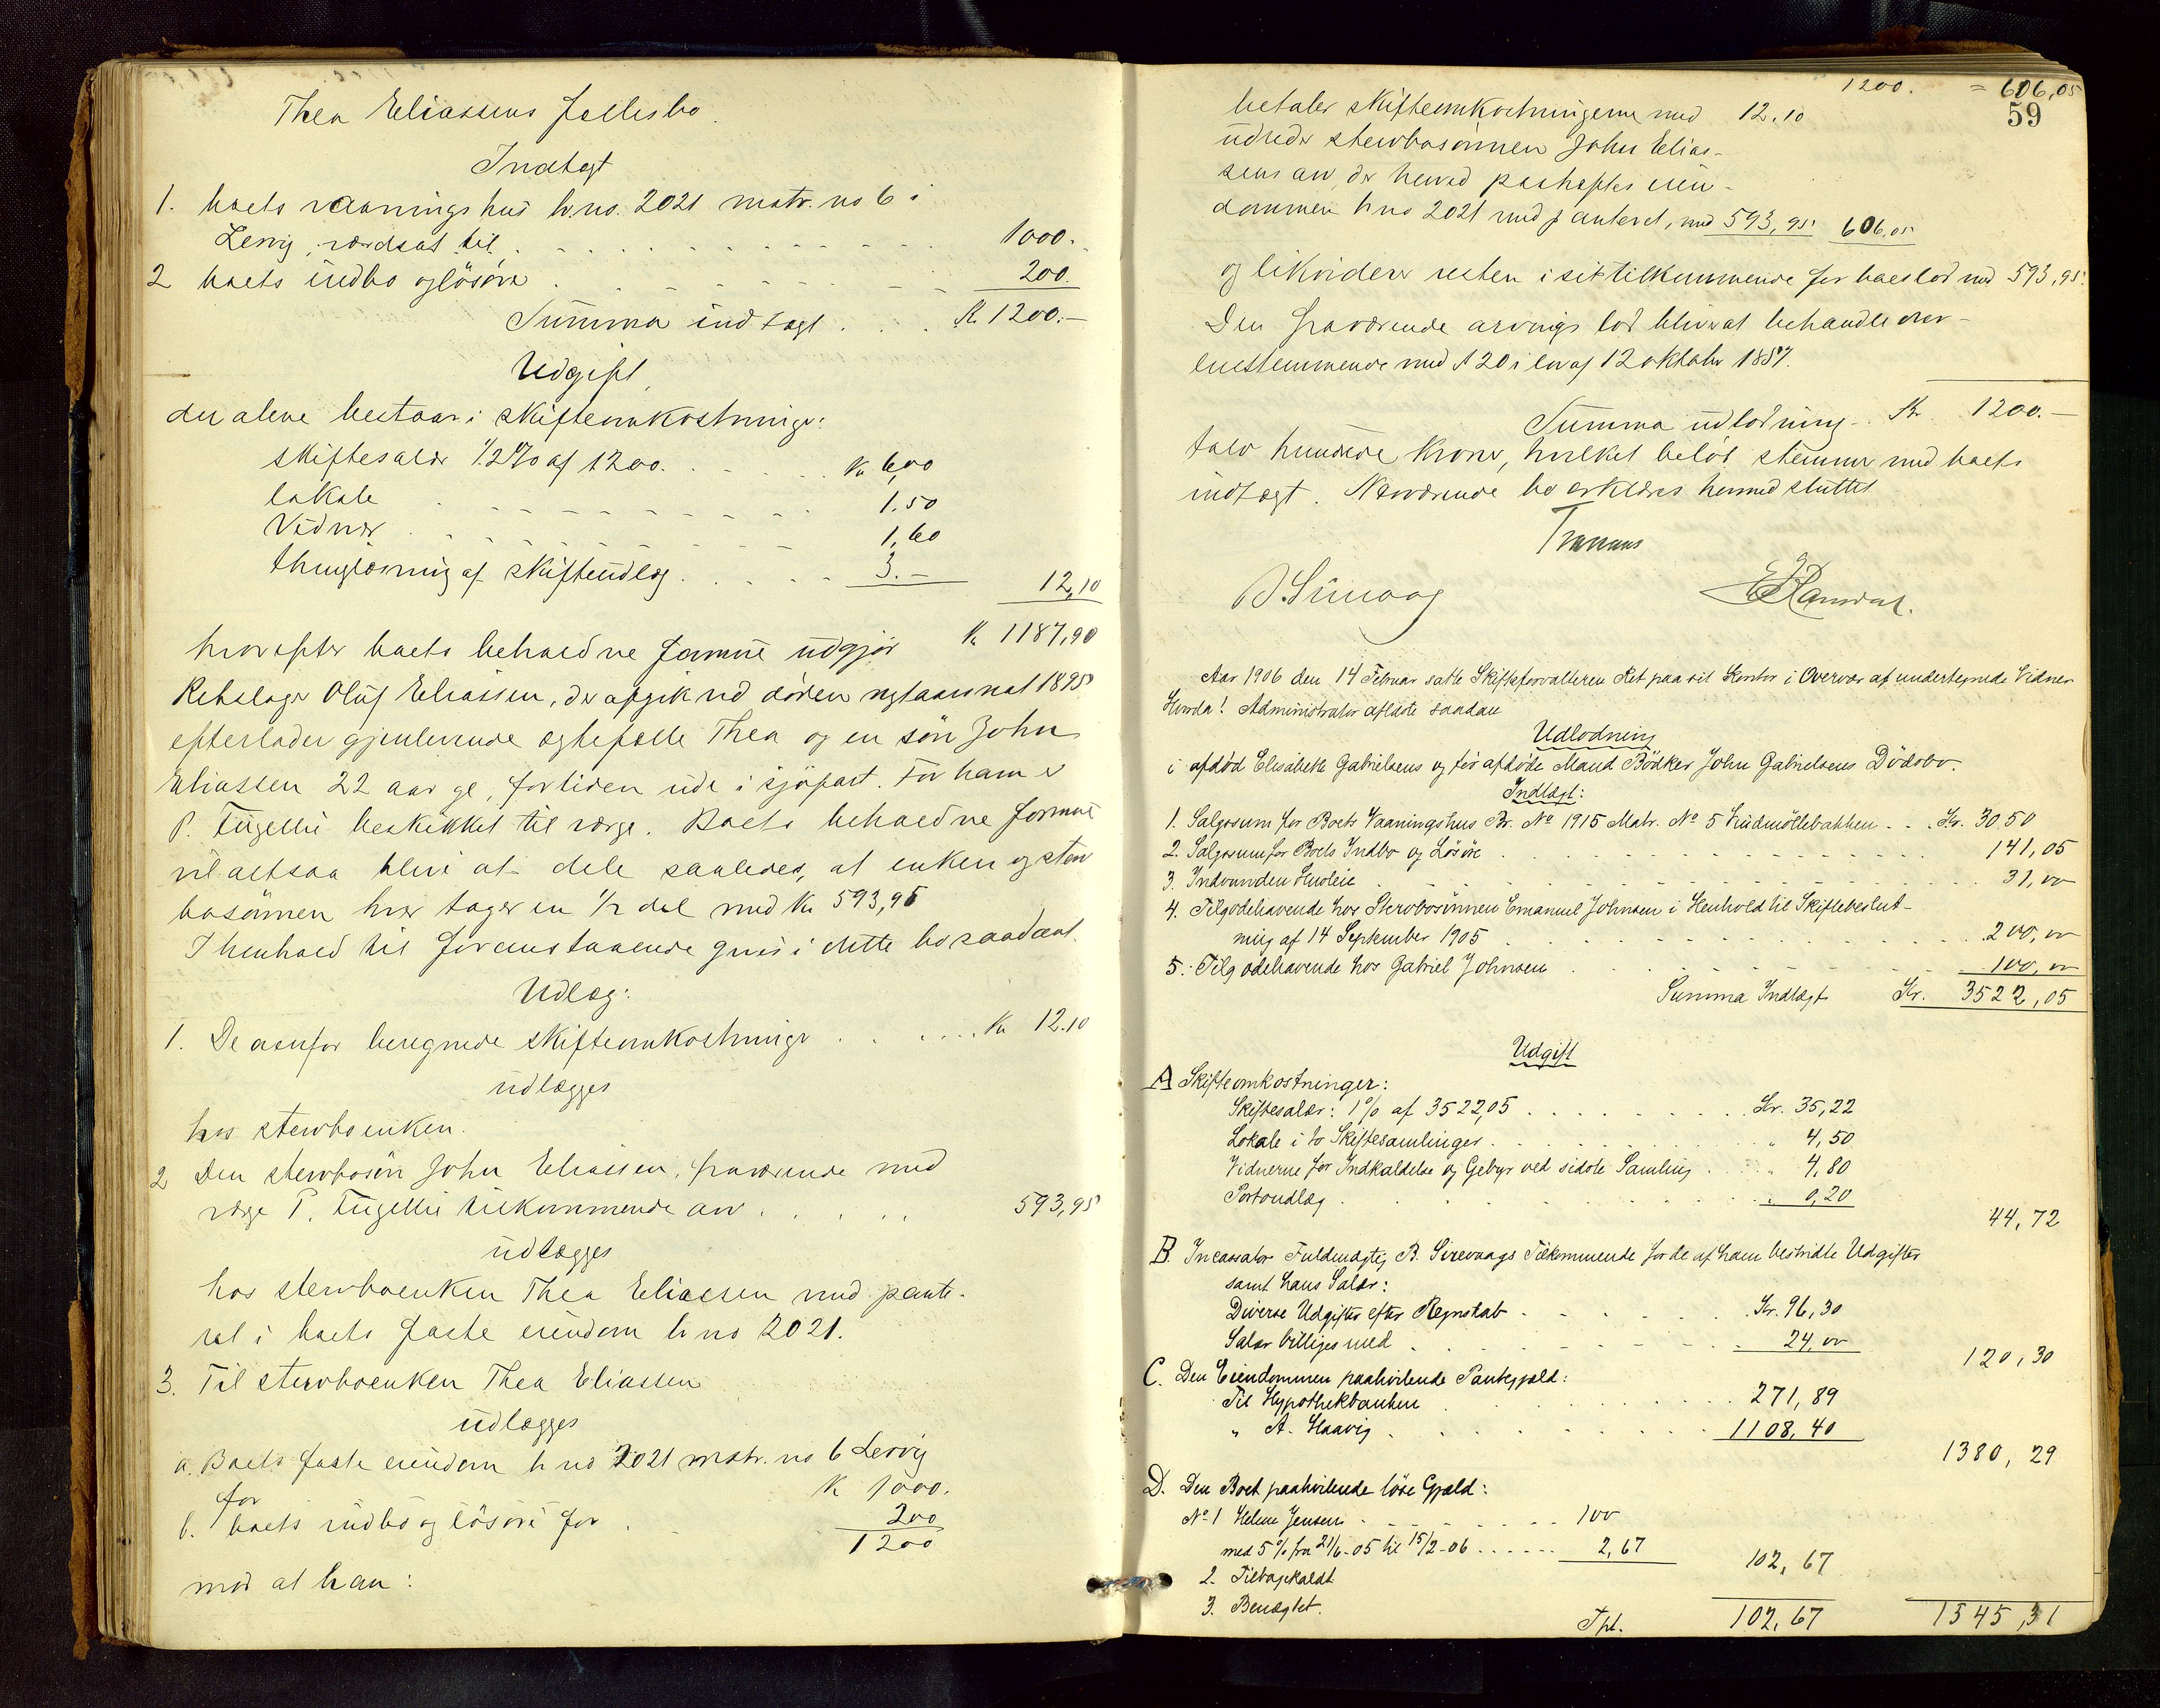 Thea Eliassens fællesbo.
Indtægt
1. boets vaaningshus br.no. 2021 matr. no 6 i
Lervig, værdsat til 1000.
2 boets indbo og løsøre 200.
Summa indtægt Kr 1200.-
Udgift,
der alene bestaar i skifteomkostninger:
skiftesalær 1/2 % af 1200. Kr 6,00
lokale 1.50
Vidner 1,60
thinglæsning af skifteudlæg 3.- 12,10
hvorefter boets beholdne formue udgjør Kr 1187,90
Rebslager Oluf Eliassen, der afgik ved døden nytaarsnat 1895
efterlader gjenlevende ægtefælle Thea og en søn John
Eliassen 22 aar gl, for tiden ude i sjøfart. For ham er
P. Tügellie beskikket til værge. Boets beholdne formue
vil altsaa blive at dele saaledes, at enken og sterv-
bosønnen hver tager en 1/2 del med Kr 593,95
I henhold til foranstaaende gives i dette bo saadant
Udlæg:
1. De ovenfor beregnede skifteomkostninger Kr 12.10
udlægges
hos stervboenken.
2 Den stervbosøn John Eliassen, fraværende med
værge P. Tügellie tilkommende arv 593,95
udlægges
hos stervboenken Thea Eliassen med pante-
ret i boets faste eiendom br no 2021.
3. Til stervboenken Thea Eliassen
udlægges
a. Boets faste eiendom br no 2021 matr. no 6 Lervig
for K 1000.
b. boets indbo og løsøre for 200
1200
mod at hun:
1200. = 606,05
59
betaler skifteomkostningerne med 12.10
udreder stervbosønnen John Elias-
sens arv, der herved paaheftes eien-
dommen br no 2021 med panteret, med 593,95 606.05
og likviderer resten i sit tilkommende for boeslod med 593,95.
Den fraværende arvings lod bliver at behandle over-
ensstemmende med § 20 i lov af 12 oktober 1857.
Summa udlodning Kr 1200.-
tolv hundrede kroner, hvilket beløb stemmer med boets
indtægt. Nærværende bo erklæres hermed sluttet
B. Sirevaag
Aar 1906 den 14 Februar satte Skifteforvalteren Ret paa sit Kontor i Overvær af undertegnede Vidner
Hvorda! Administrator afledte saadan
Udlodning
i afdød Elisabeth Gabrielsens og før afdøde Mand Bødker John Gabrielsens Dødsbo.
Indtægt:
1. Salgssum for Boets Vaaningshus Br. No 1915 Matr. No 5 Vindmøllebakken Kr. 3050
2. Salgssum for Boets Indbo og Løsøre 141,05
3. Indvunden Husleie 31,00
4. Tilgodehavende hos Stervbosønnen Emanuel Johnsen i Henhold til Skiftebeslut-
ning af 14 September 1905 200,00
5. Tilgodehavende hos Gabriel Johnsen 100,00
Summa Indtægt Kr. 3522,05
Udgift
A Skifteomkostninger:
Skiftesalær: 1% af 3522,05 Kr. 35,22
Lokale i to Skiftesamlinger " 4,50
Vidnerne for Indkaldelse og Gebyr ved sidste Samling " 4,80
Portoudlæg " 0,20
44,72
B. Incassator Fuldmægtig B. Sirevaags Tilkommende for de af ham bestridte Udgifter
samt hans Salær:
Diverse Udgifter efter Regnskab Kr. 96,30
Salær billiges med 24,00
120,30
C. Den Eiendommen paahvilende Pantegjæld:
Til Hypothekbanken 271,89
" A. Haavig 1108,40
1380,29
D. Den Boet paahvilende løse Gjæld:
No 1 Helene Jensen 100
med 5 % fra 21/6-05 til 15/2-06 2,67
102,67
2. Tilbagekaldt
3. Benægtet.
Tpt. 102,67 1545,31